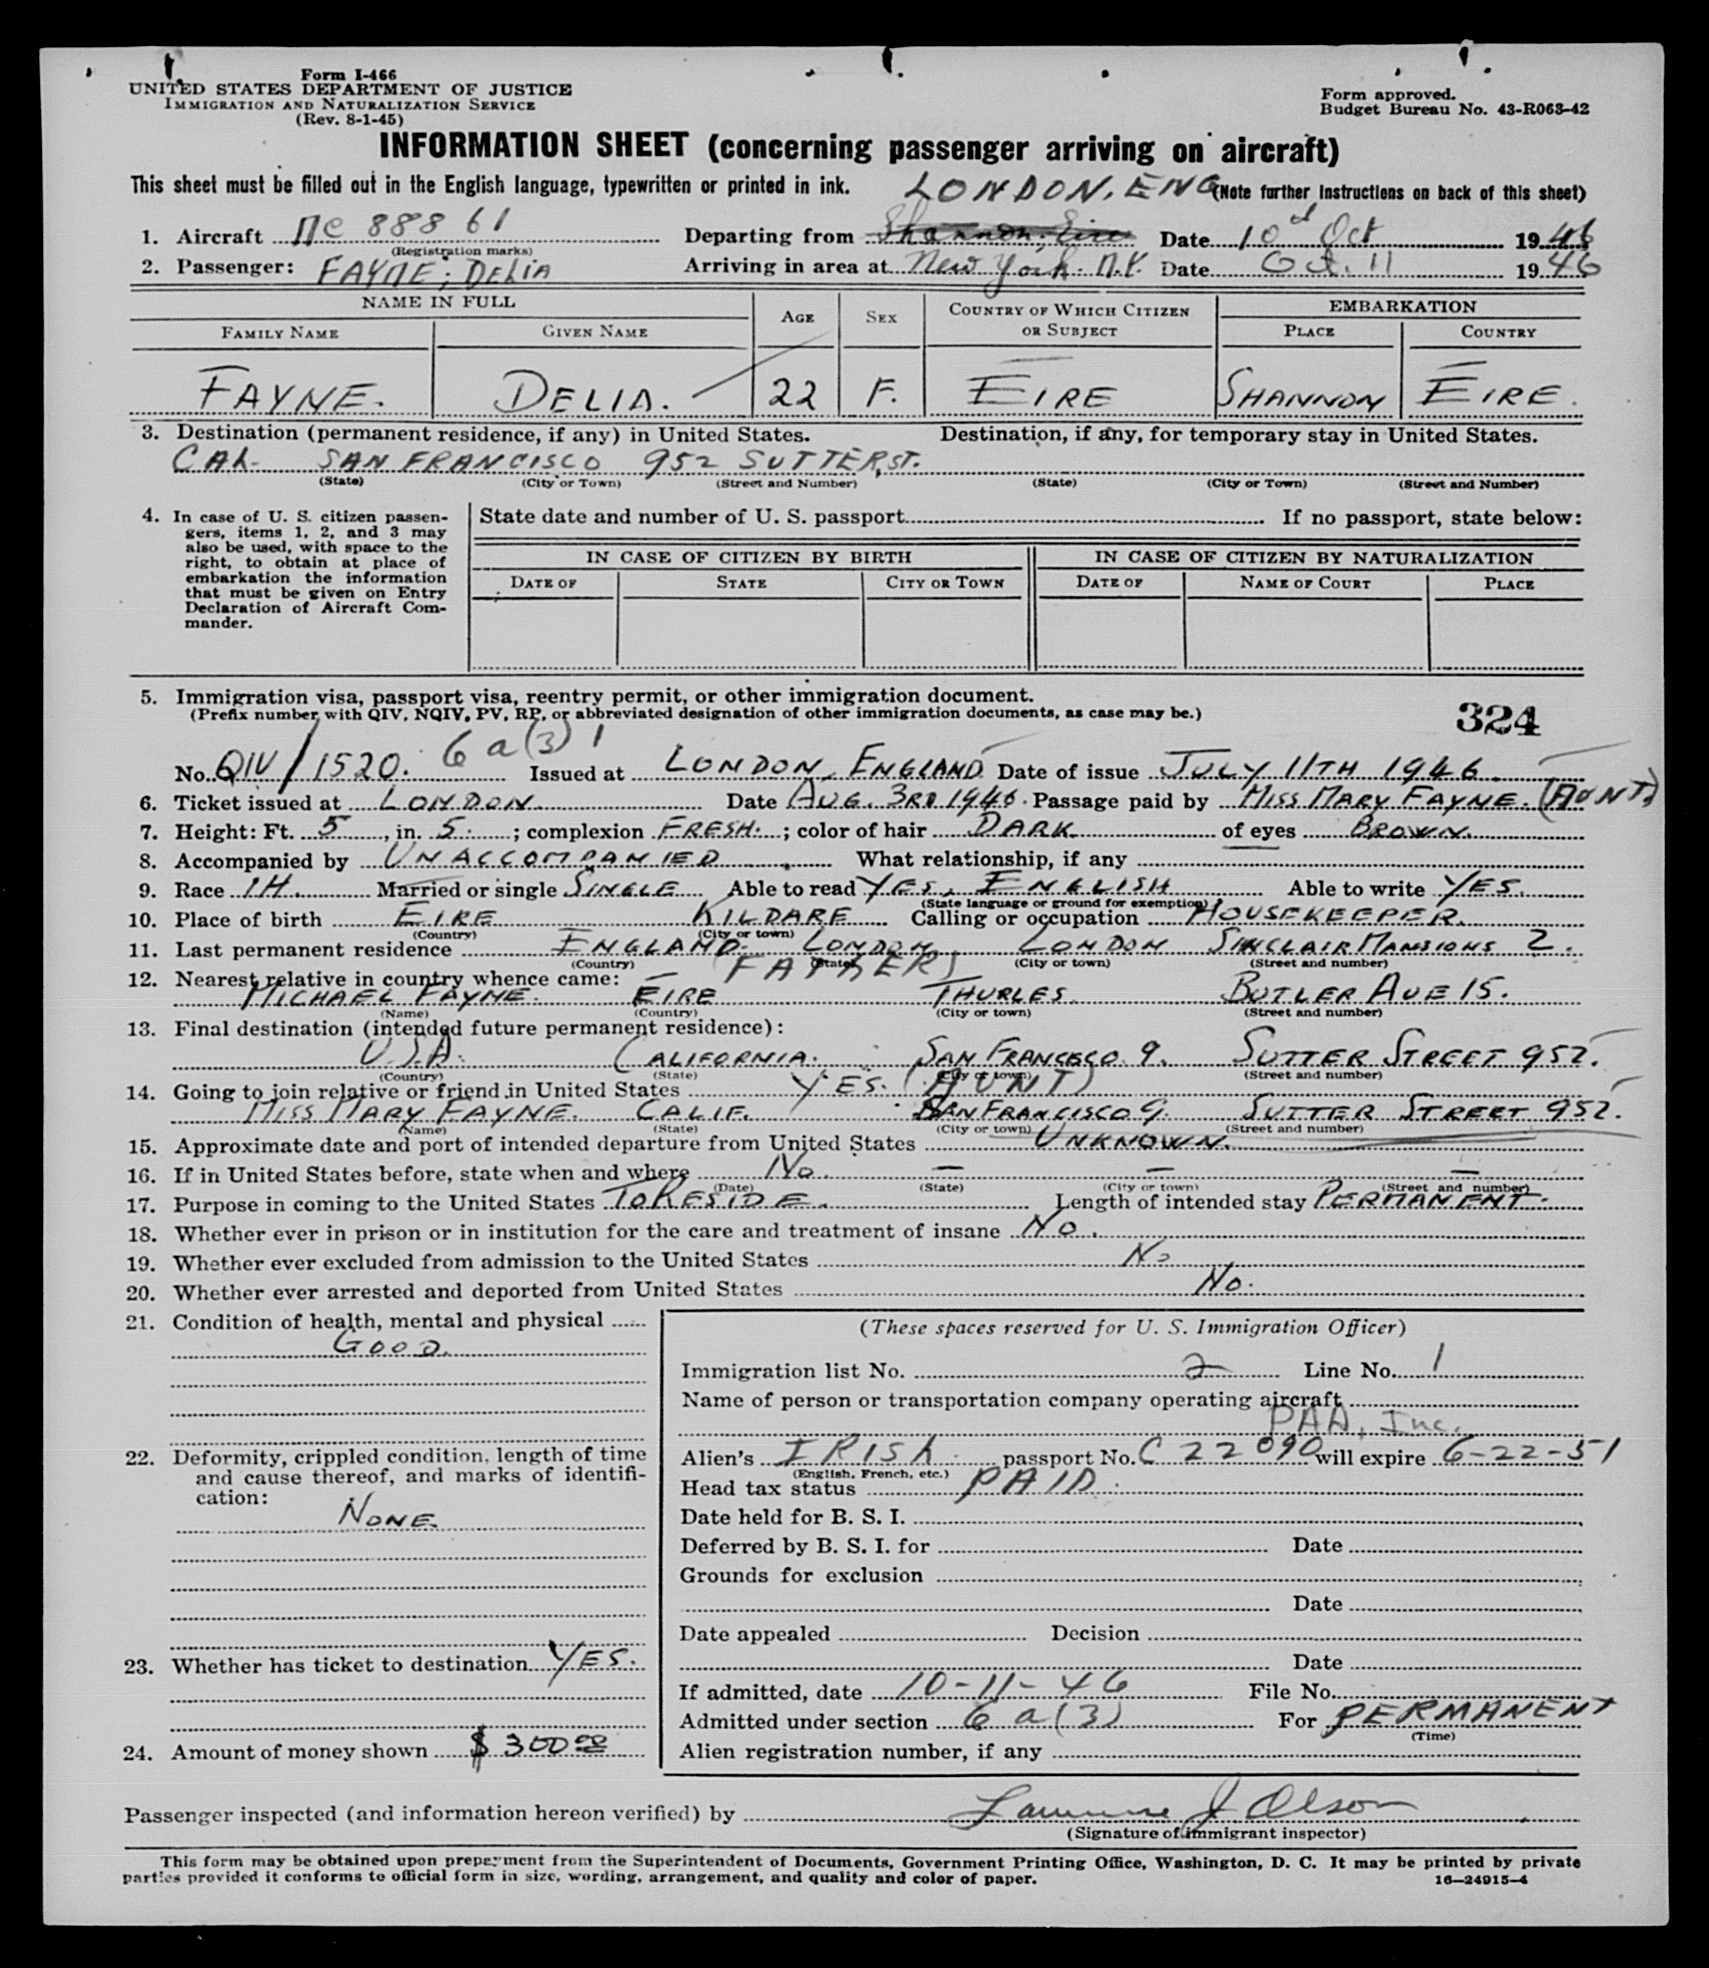 Form I-466
UNITED STATES DEPARTMENT OF JUSTICE
IMMIGRATION AND NATURALIZATION SERVICE
(Rev. 8-1-45)
Form approved.
Budget Bureau No. 43-R063-42
INFORMATION SHEET (concerning passenger arriving on aircraft)
This sheet must be filled out in the English language, typewritten or printed in ink. LONDON, ENG (Note further instructions on back of this sheet)
1. Aircraft NC 88861 Departing from Shannon, Eire Date 10th Oct 1946
(Registration marks)
2. Passenger: FAYNE; DELIA Arriving in area at New York. N.Y. Date Oct. 11 1946
NAME IN FULL AGE SEX COUNTRY OF WHICH CITIZEN OR SUBJECT EMBARKATION
FAMILY NAME GIVEN NAME PLACE COUNTRY
FAYNE. DELIA. 22 F. EIRE SHANNON EIRE.
3. Destination (permanent residence, if any) in United States. Destination, if any, for temporary stay in United States.
CAL. SAN FRANCISCO 952 SUTTER, ST.
(State) (City or Town) (Street and Number) (State) (City or Town) (Street and Number)
4. In case of U. S. citizen passengers, items 1, 2, and 3 may also be used, with space to the right, to obtain at place of embarkation the information that must be given on Entry Declaration of Aircraft Commander.
State date and number of U. S. passport If no passport, state below:
IN CASE OF CITIZEN BY BIRTH IN CASE OF CITIZEN BY NATURALIZATION
DATE OF STATE CITY OR TOWN DATE OF NAME OF COURT PLACE
5. Immigration visa, passport visa, reentry permit, or other immigration document.
(Prefix number with QIV, NQIV, PV, RP, or abbreviated designation of other immigration documents, as case may be.)
324
No. QIV/1520. 6 a (3) 1 Issued at LONDON, ENGLAND Date of issue JULY 11TH 1946.
6. Ticket issued at LONDON Date AUG. 3RD 1946. Passage paid by MISS MARY FAYNE. (AUNT.)
7. Height: Ft. 5, in. 5.; complexion FRESH.; color of hair DARK of eyes BROWN.
8. Accompanied by UNACCOMPANIED What relationship, if any
9. Race IH. Married or single SINGLE Able to read YES, ENGLISH Able to write YES.
(State language or ground for exemption)
10. Place of birth EIRE KILDARE Calling or occupation HOUSEKEEPER.
(Country) (City or town)
11. Last permanent residence ENGLAND. LONDON LONDON SINCLAIR MANSIONS 2.
(Country) (State) (City or town) (Street and number)
12. Nearest relative in country whence came: (FATHER)
MICHAEL FAYNE. EIRE THURLES. BUTLER AVE 15.
(Name) (Country) (City or town) (Street and number)
13. Final destination (intended future permanent residence):
U.S.A. CALIFORNIA. SAN FRANCISCO 9. SUTTER STREET 952.
(Country) (State) (City or town) (Street and number)
14. Going to join relative or friend in United States YES. (AUNT)
MISS MARY FAYNE. CALIF. SAN FRANCISCO 9. SUTTER STREET 952.
(Name) (State) (City or town) (Street and number)
15. Approximate date and port of intended departure from United States UNKNOWN.
16. If in United States before, state when and where No. — — —
(Date) (State) (City or town) (Street and number)
17. Purpose in coming to the United States TO RESIDE. Length of intended stay PERMANENT.
18. Whether ever in prison or in institution for the care and treatment of insane No.
19. Whether ever excluded from admission to the United States No
20. Whether ever arrested and deported from United States No.
21. Condition of health, mental and physical
GOOD.
22. Deformity, crippled condition, length of time and cause thereof, and marks of identification:
NONE.
23. Whether has ticket to destination YES.
24. Amount of money shown $300.00
(These spaces reserved for U. S. Immigration Officer)
Immigration list No. 2 Line No. 1
Name of person or transportation company operating aircraft
PAA, Inc.
Alien's IRISH passport No. C 22090 will expire 6-22-51
(English, French, etc.)
Head tax status PAID.
Date held for B. S. I.
Deferred by B. S. I. for Date
Grounds for exclusion
Date
Date appealed Decision
Date
If admitted, date 10-11-46 File No.
Admitted under section 6 a (3) For PERMANENT
(Time)
Alien registration number, if any
Passenger inspected (and information hereon verified) by Lawrence J Olson
(Signature of immigrant inspector)
This form may be obtained upon prepayment from the Superintendent of Documents, Government Printing Office, Washington, D. C. It may be printed by private
parties provided it conforms to official form in size, wording, arrangement, and quality and color of paper.
16—24915-4